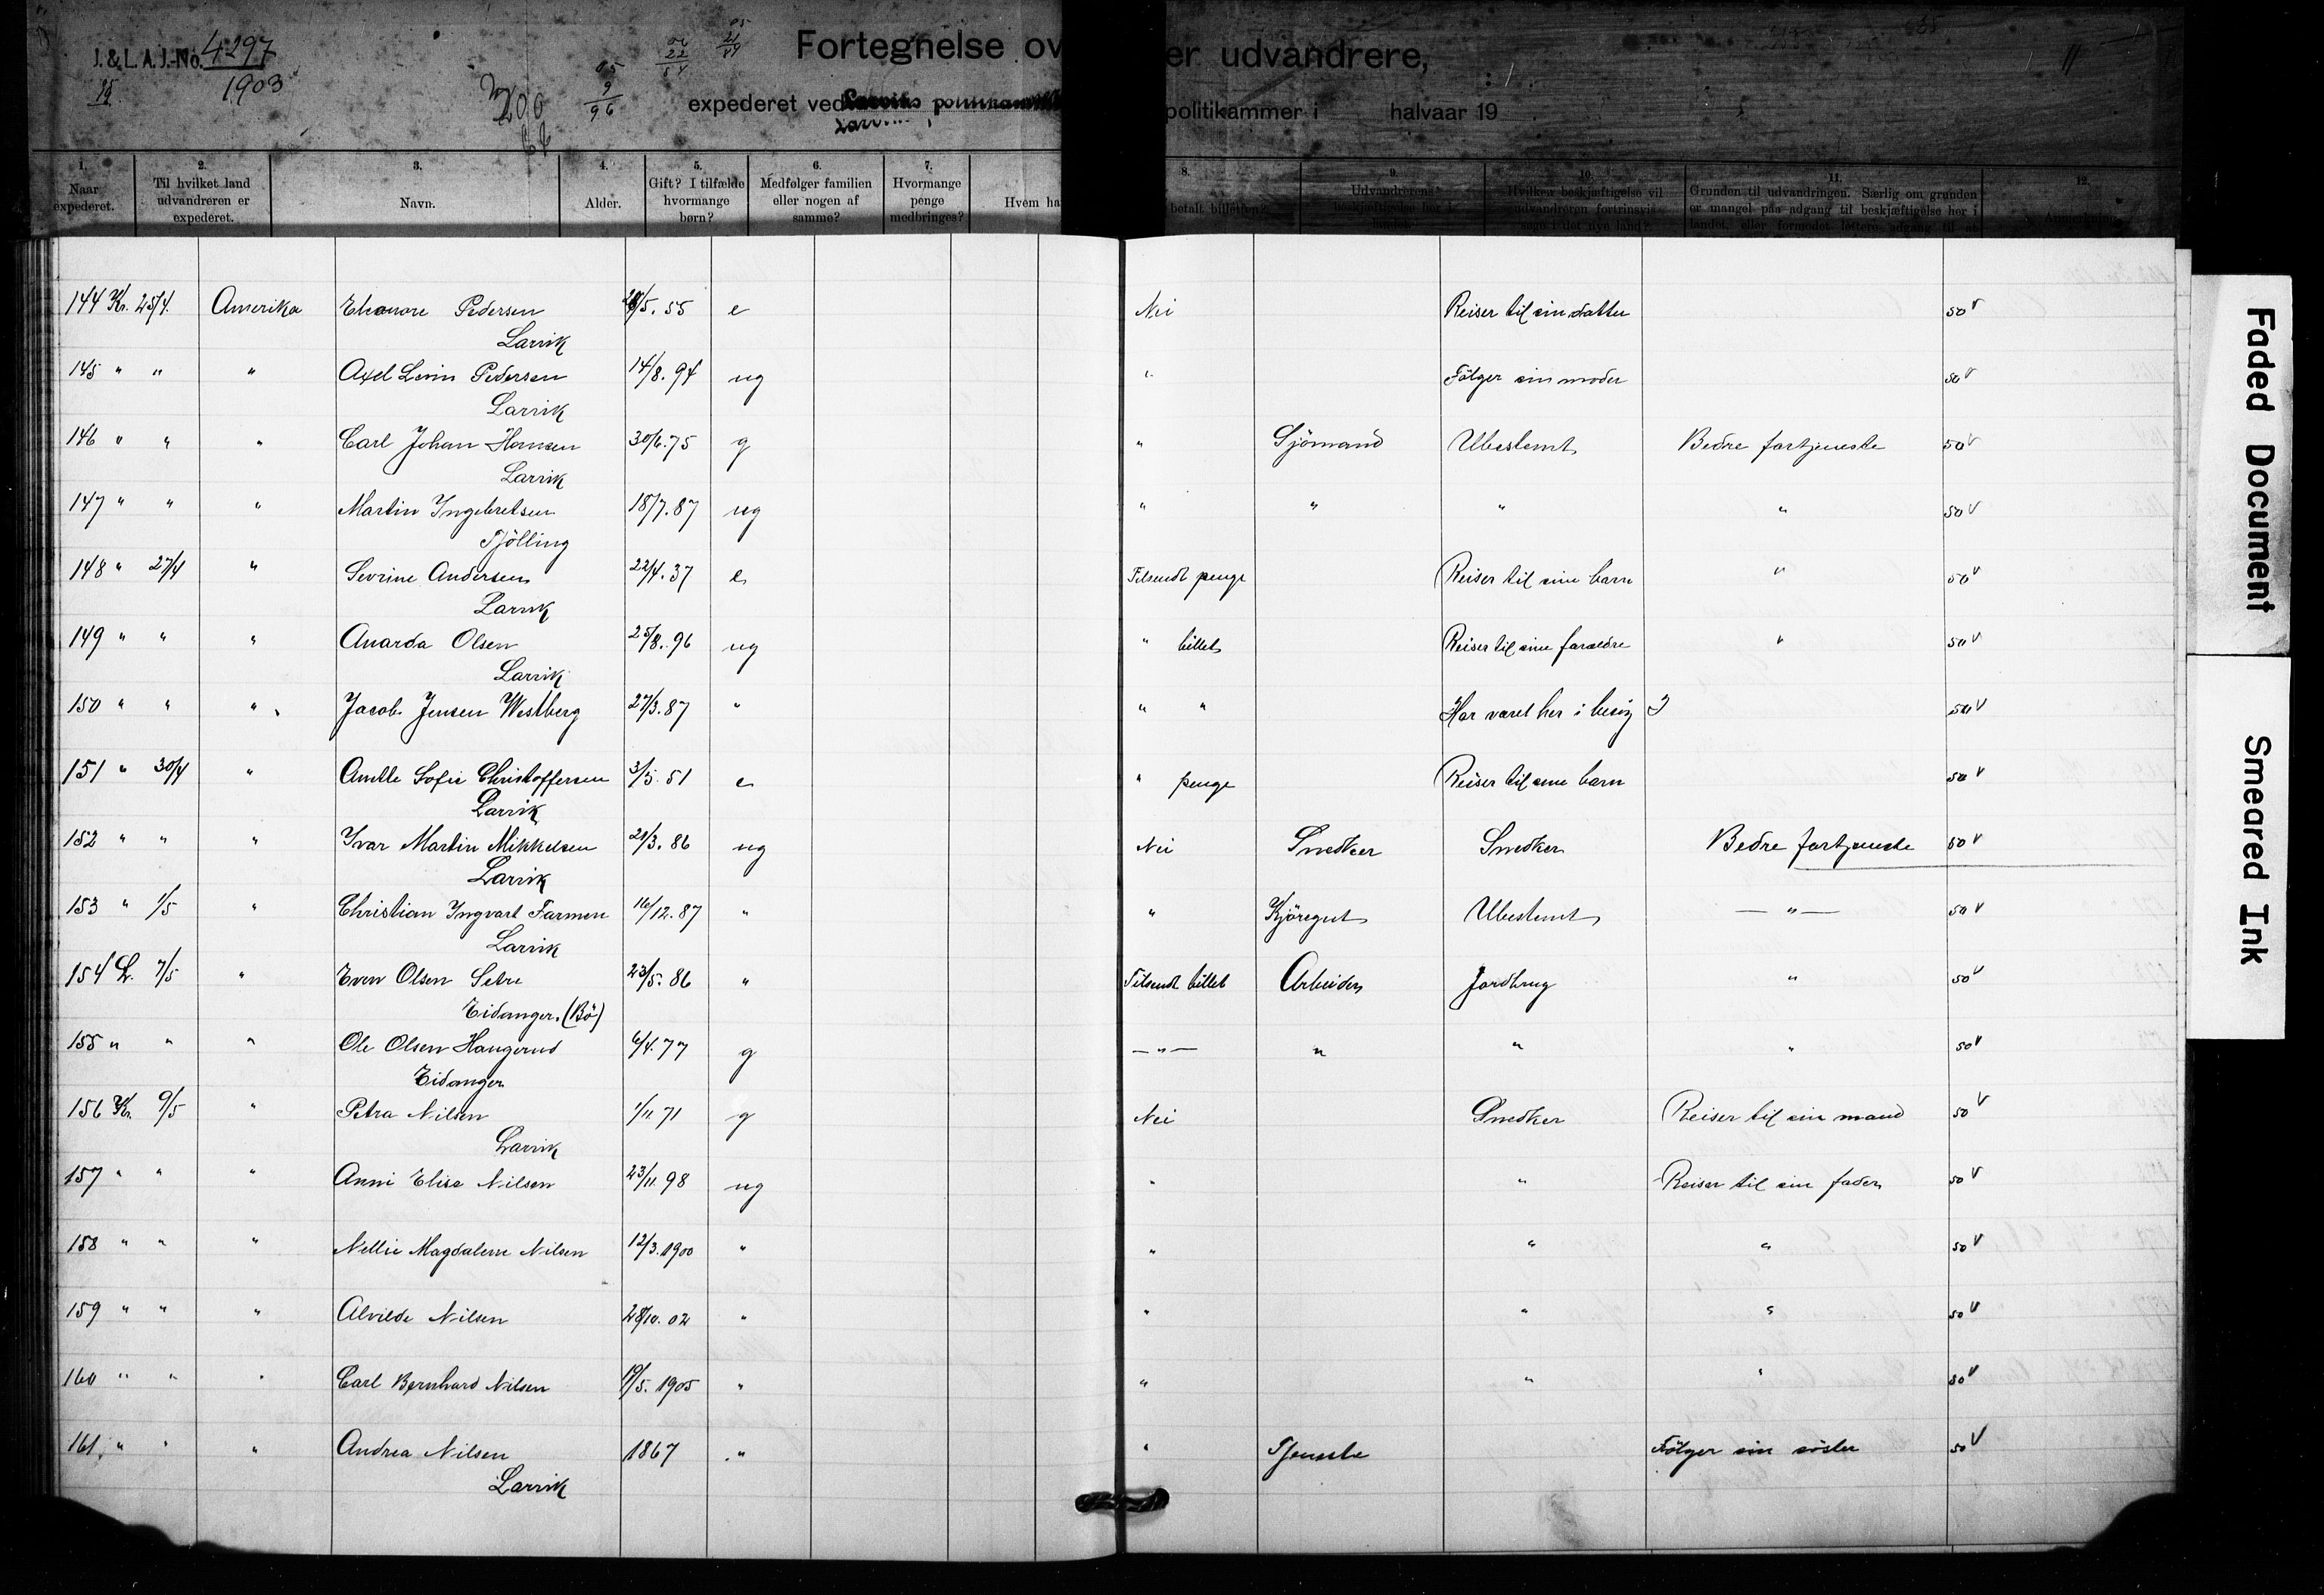 J. & L. A. J.-No. 4297
1903
Fortegnelse over udvandrere,
expederet ved Larviks politikammer i halvaar 19
1. Naar expederet.
2. Til hvilket land udvandreren er expederet.
3. Navn.
4. Alder.
5. Gift? I tilfælde hvormange børn?
6. Medfølger familien eller nogen af samme?
7. Hvormange penge medbringes?
Hvem ha
8. betalt billetten?
9. Udvandrerens beskjæftigelse her i landet.
10. Hvilken beskjæftigelse vil udvandreren fortrinsvis søge i det nye land?
11. Grunden til udvandringen. Særlig om grunden er mangel paa adgang til beskjæftigelse her i landet, eller formodet lettere adgang til at
12.
144 Kr. 25/4. Amerika Eleonore Pedersen /5. 55 e Nei Reiser til sin datter 50 V
Larvik
145 " " " Axel Levin Pedersen 14/8. 94 ug " Følger sin moder 50 V
Larvik
146 " " " Carl Johan Hansen 30/6. 75 g " Sjömand Ubestemt Bedre fortjeneste 50 V
Larvik
147 " " " Martin Ingebretsen 18/7. 87 ug " " " " 50 V
Tjölling
148 " 27/4 " Sevrine Andersen 22/4. 37 e Tilsendt penge Reiser til sine barn " 50 V
Larvik
149 " " " Anarda Olsen 25/8. 96 ug " billet Reiser til sine foraldre " 50 V
Larvik
150 " " " Jacob Jensen Westberg 27/3. 87 " " " Har varet her i besög 50 V
151 " 30/4 " Amlle Sofie Christoffersen 3/5. 51 e " penge Reiser til sine barn 50 V
Larvik
152 " " " Ivar Martin Mikkelsen 21/3. 86 ug Nei Snedker Snedker Bedre fortjeneste 50 V
Larvik
153 " 1/5 " Christian Ingvart Farmen 16/12. 87 " " Kjöregut Ubestemt — " — 50 V
Larvik
154 L. 7/5 " Even Olsen Setre 23/5. 86 " Tilsendt billet Arbeider Jordbrug " 50 V
Eidanger. (Bö)
155 " " " Ole Olsen Haugerud 6/4. 77 g — " — " " " 50 V
Eidanger
156 Kr. 9/5 " Petra Nilsen 1/11. 71 g Nei Snedker Reiser til sin mand 50 V
Larvik
157 " " " Anni Elise Nilsen 23/11. 98 ug " " Reiser til sin fader 50 V
158 " " " Nellie Magdalene Nilsen 12/3. 1900 " " " " 50 V
159 " " " Alvilde Nilsen 28/10. 02 " " " " 50 V
160 " " " Carl Bernhard Nilsen 19/5. 1905 " " " " 50 V
161, " " " Andrea Nilsen 1867 " " Tjeneste Følger sin söster 50 V
Larvik
Faded Document
Smeared Ink